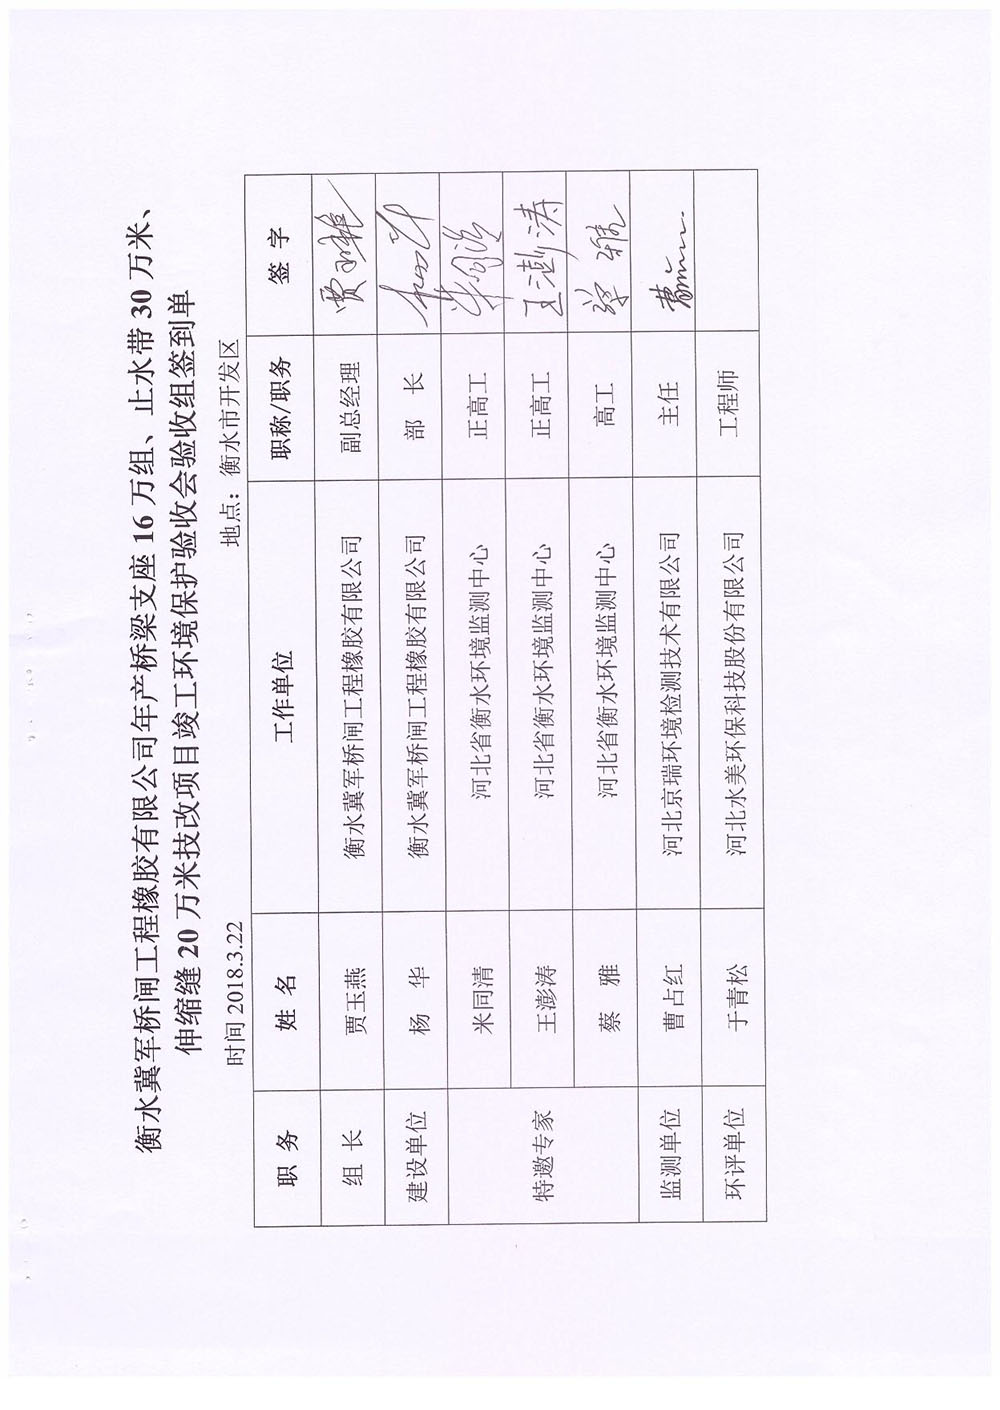 衡水冀军桥闸工程橡胶有限公司年产桥梁支座 16 万组、止水带 30 万米、
伸缩缝 20 万米技改项目竣工环境保护验收会验收组签到单
时间 2018.3.22 地点：衡水市开发区
职 务 姓 名 工作单位 职称/职务 签 字
组 长 贾玉燕 衡水冀军桥闸工程橡胶有限公司 副总经理
建设单位 杨 华 衡水冀军桥闸工程橡胶有限公司 部 长
特邀专家 米同清 河北省衡水环境监测中心 正高工
王澎涛 河北省衡水环境监测中心 正高工 王澎涛
蔡 雅 河北省衡水环境监测中心 高工
监测单位 曹占红 河北京瑞环境检测技术有限公司 主任
环评单位 于青松 河北水美环保科技股份有限公司 工程师